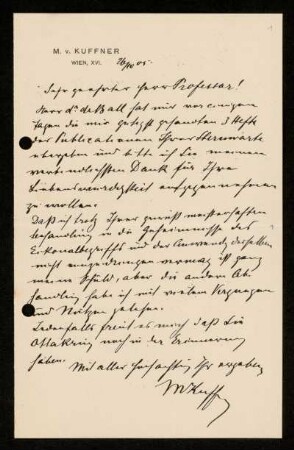 M. v. KUFFNER
WIEN, XVI. 26/10 05.
Sehr geehrter Herr Professor!
Herr Dr. de Ball hat mir vor einigen
Tagen die mir gütigst gesandten 3 Hefte
der Publicationen Ihrer Sternwarte
übergeben und bitte ich Sie meinen
verbindlichsten Dank für Ihre
Liebenswürdigkeit entgegennehmen
zu wollen.
Daß ich trotz Ihrer gewiß meisterhaften
Behandlung in die Geheimnisse des
Eikonalbegriffs und der Anwendg desselben
nicht einzudringen vermag ist ganz
meine Schuld, aber die andern Ab
handlung habe ich mit vielem Vergnügen
und Nutzen gelesen.
Jedenfalls freut es mich daß Sie
Ottakring noch in der Erinnerung
haben.
Mit aller Hochachtung Ihr ergebener
MKuffner